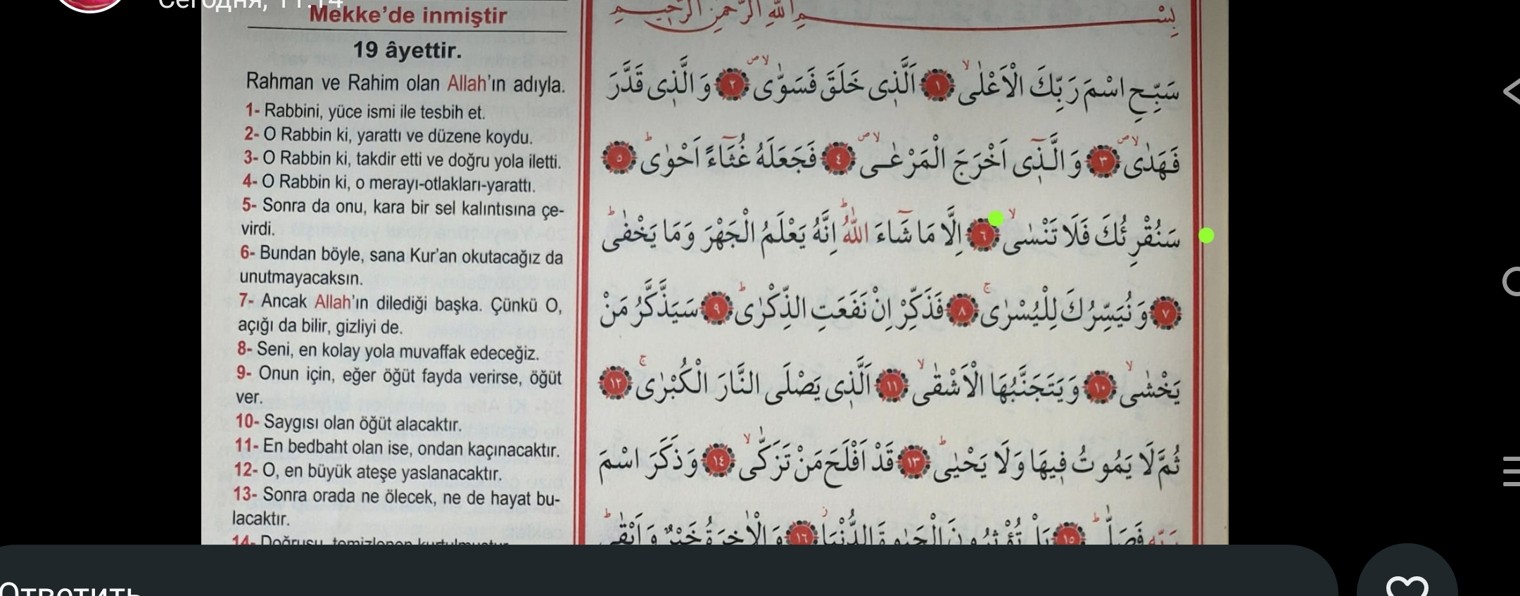 Сегодня, 11:14
Mekke'de inmiştir
19 âyettir.
Rahman ve Rahim olan Allah'ın adıyla.
1- Rabbini, yüce ismi ile tesbih et.
2- O Rabbin ki, yarattı ve düzene koydu.
3- O Rabbin ki, takdir etti ve doğru yola iletti.
4- O Rabbin ki, o merayı-otlakları-yarattı.
5- Sonra da onu, kara bir sel kalıntısına çe-
virdi.
6- Bundan böyle, sana Kur'an okutacağız da
unutmayacaksın.
7- Ancak Allah'ın dilediği başka. Çünkü O,
açığı da bilir, gizliyi de.
8- Seni, en kolay yola muvaffak edeceğiz.
9- Onun için, eğer öğüt fayda verirse, öğüt
ver.
10- Saygısı olan öğüt alacaktır.
11- En bedbaht olan ise, ondan kaçınacaktır.
12- O, en büyük ateşe yaslanacaktır.
13- Sonra orada ne ölecek, ne de hayat bu-
lacaktır.
14- Doğrusu, temizlenen kurtulmuştur
بِسْمِ اللّٰهِ الرَّحْمٰنِ الرَّحِيمِ
سَبِّحِ اسْمَ رَبِّكَ الْاَعْلٰىۙ ﴿١﴾ اَلَّذ۪ى خَلَقَ فَسَوّٰىۙۖ ﴿٢﴾ وَالَّذ۪ى قَدَّرَ
فَهَدٰىۙۖ ﴿٣﴾ وَالَّذ۪ٓى اَخْرَجَ الْمَرْعٰىۙۖ ﴿٤﴾ فَجَعَلَهُ غُثَٓاءً اَحْوٰىۜ ﴿٥﴾
سَنُقْرِئُكَ فَلَا تَنْسٰىۙ ﴿٦﴾ اِلَّا مَا شَٓاءَ اللّٰهُۜ اِنَّهُ يَعْلَمُ الْجَهْرَ وَمَا يَخْفٰىۜ
﴿٧﴾ وَنُيَسِّرُكَ لِلْيُسْرٰىۚ ﴿٨﴾ فَذَكِّرْ اِنْ نَفَعَتِ الذِّكْرٰىۜ ﴿٩﴾ سَيَذَّكَّرُ مَنْ
يَخْشٰىۙ ﴿١٠﴾ وَيَتَجَنَّبُهَا الْاَشْقٰىۙ ﴿١١﴾ اَلَّذ۪ى يَصْلَى النَّارَ الْكُبْرٰىۚ ﴿١٢﴾
ثُمَّ لَا يَمُوتُ ف۪يهَا وَلَا يَحْيٰىۜ ﴿١٣﴾ قَدْ اَفْلَحَ مَنْ تَزَكّٰىۙ ﴿١٤﴾ وَذَكَرَ اسْمَ
رَبِّه۪ فَصَلّٰىۜ ﴿١٥﴾ بَلْ تُؤْثِرُونَ الْحَيٰوةَ الدُّنْيَاۘ ﴿١٦﴾ وَالْاٰخِرَةُ خَيْرٌ وَاَبْقٰىۜ
Ответить